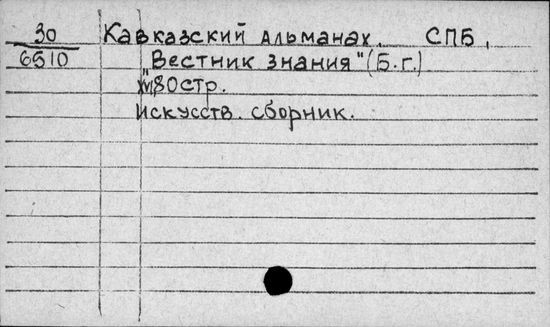 30 Кавказский альманах. СПБ,
6510 "Вестник знания" (Б.г.)
180стр.
Искусств. сборник.